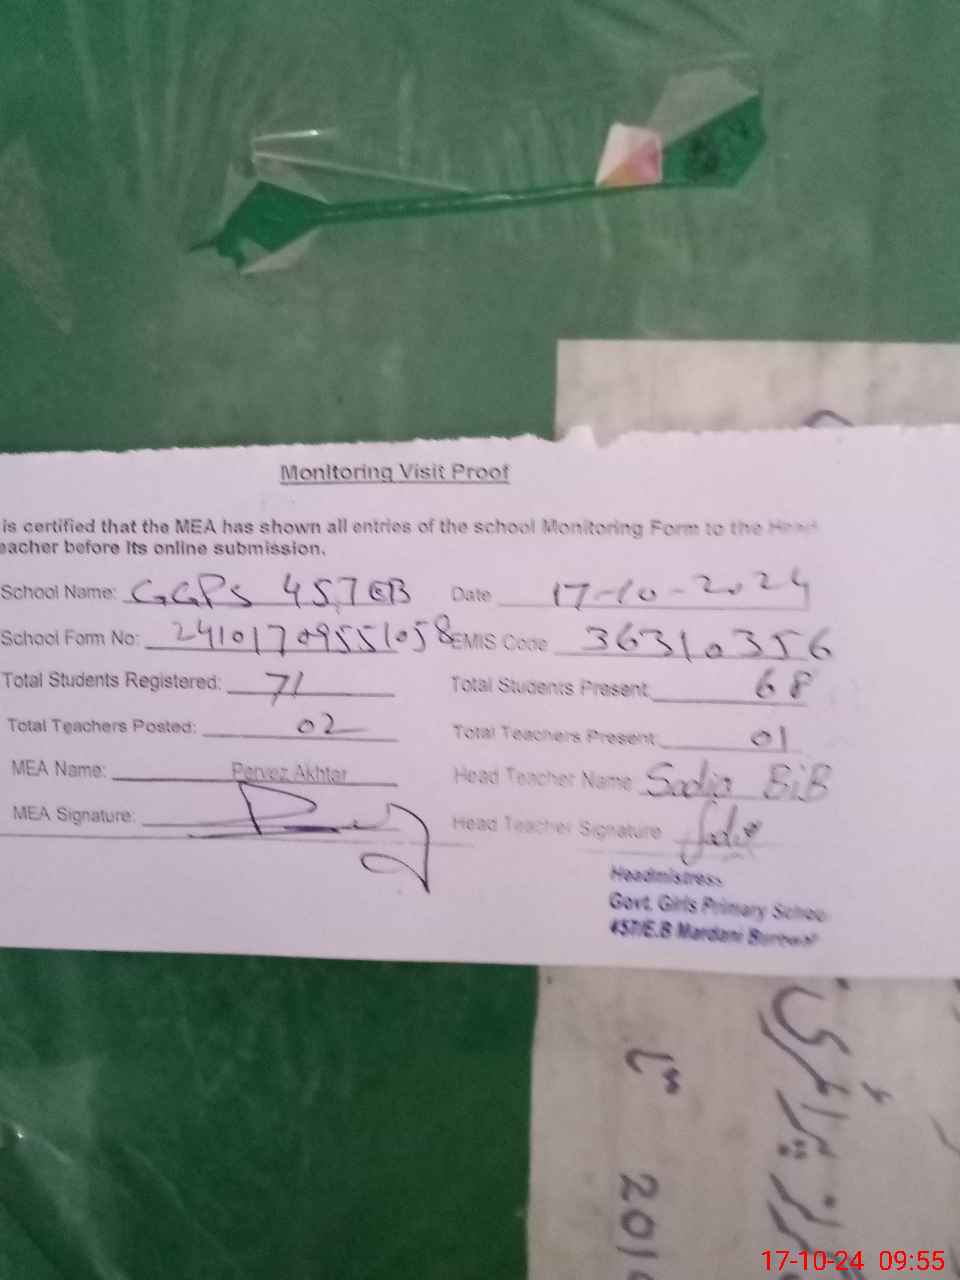 Monitoring Visit Proof
is certified that the MEA has shown all entries of the school Monitoring Form to the Head
eacher before its online submission.
School Name: GGPS 457 EB Date 17-10-2024
School Form No: 24101709551058 EMIS Code 36310356
Total Students Registered: 71 Total Students Present: 68
Total Teachers Posted: 02 Total Teachers Present: 01
MEA Name: Pervez Akhtar Head Teacher Name Sadia BiB
MEA Signature: Head Teacher Signature Sadia
Headmistress
Govt. Girls Primary School
457/E.B Mardani Burewal
201
17-10-24 09:55